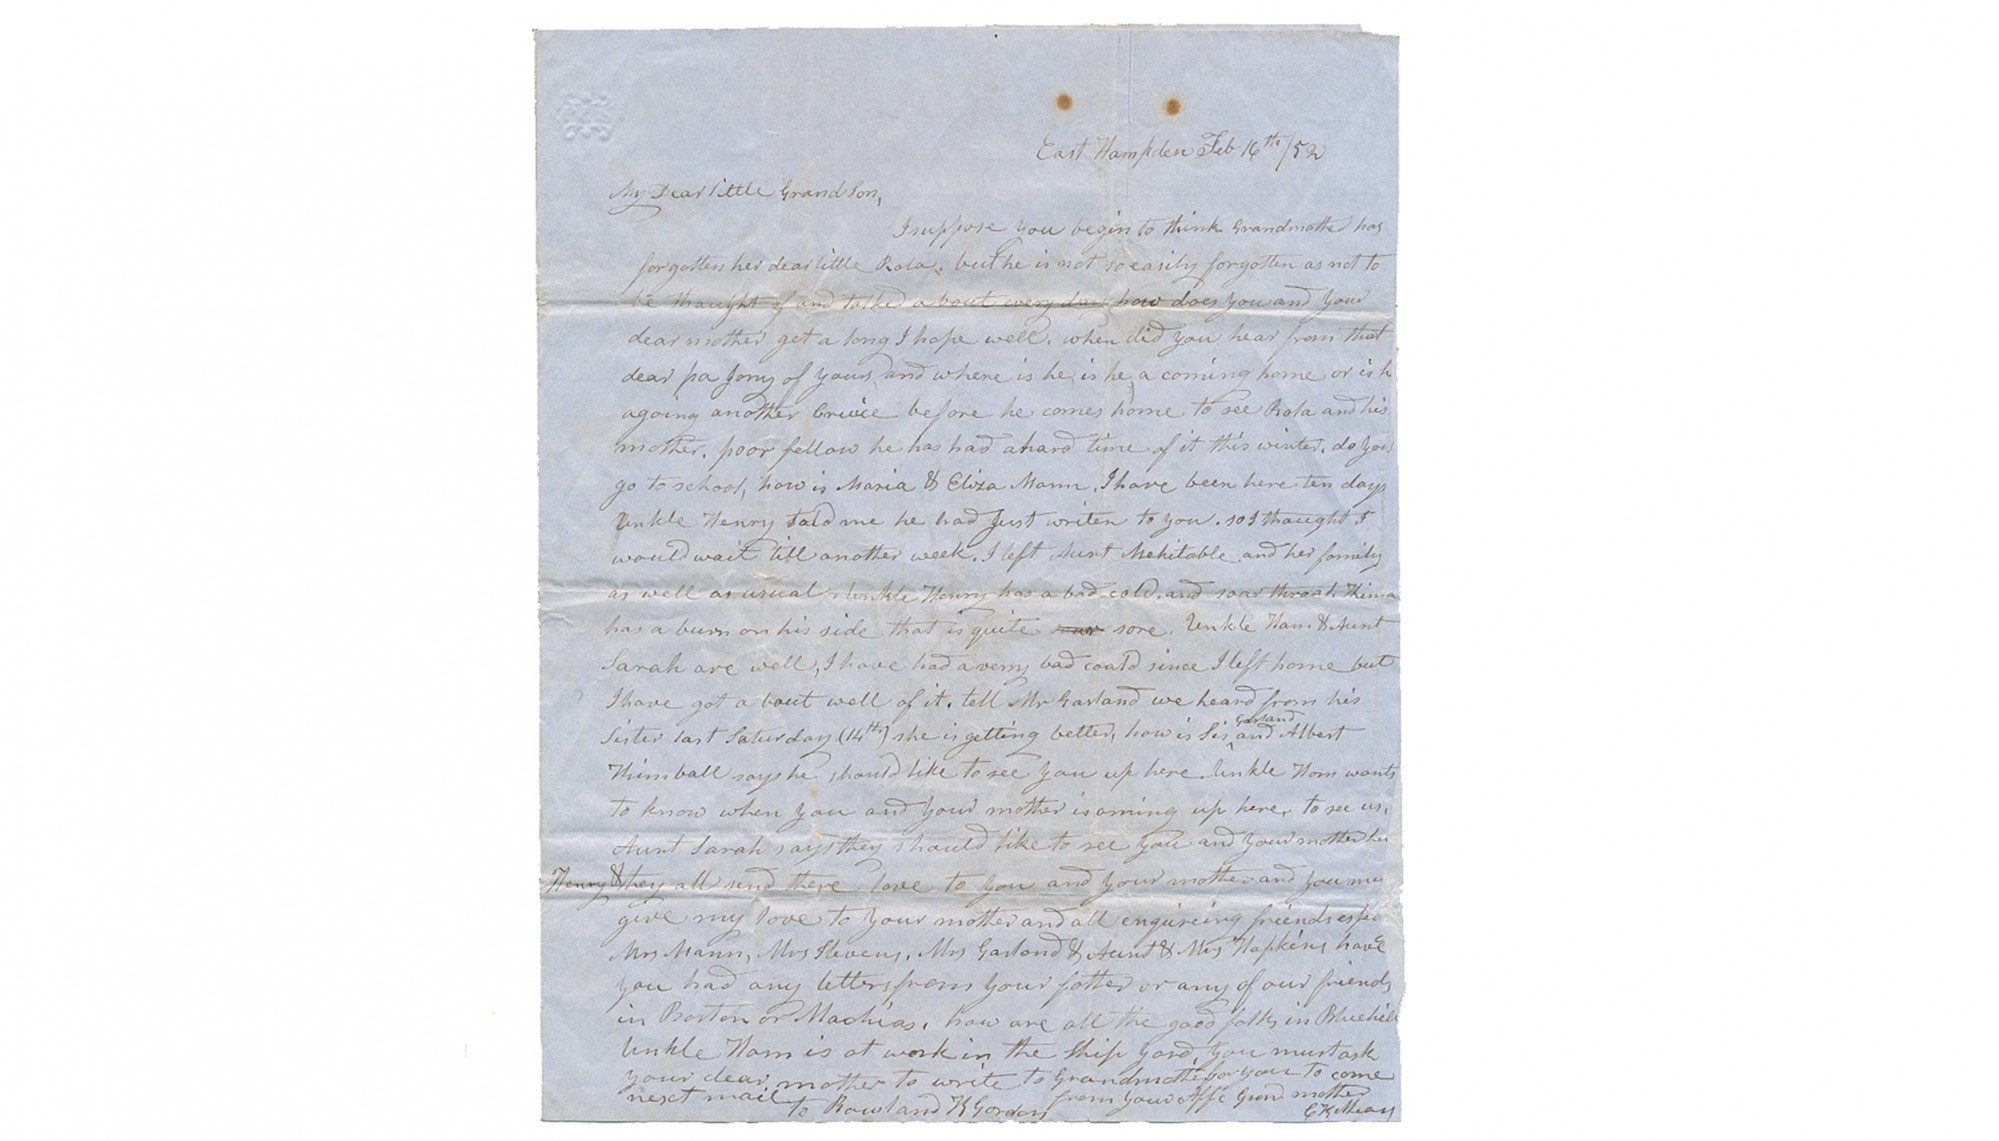 East Hampden Feb 16th/52
My Dear little Grand Son,
I suppose you begin to think Grandmother has
forgotten her dear little Rola, but he is not so easily forgotten as not to
be thought of and talked a bout every day how does you and your
dear mother get a long I hope well. when did you hear from that
dear pa of yours and where is he, is he a coming home or is h
agoing another before he comes home to see Rola and his
mother. poor fellow he has had a hard time of it this winter. do you
go to school, how is Maria & Eliza Mann. I have been here ten days
Unkle Henry told me he had Just writen to you. so I thought I
would wait till another week. I left Aunt Mehitable and her family
as well as usual. Unkle Henry has a bad cold. and soar throat
has a burn on his side that is quite sore. Unkle Ham & Aunt
Sarah are well, I have had a verry bad could since I left home but
I have got a bout well of it. tell Mr Garland we heard from his
Sister last Saturday (14th) she is getting better, how is Sis Garland and Albert
Kimball says he should like to see you up here. Unkle Ham wants
to know when you and your mother is coming up here, to see us.
Aunt Sarah says they should like to see you and your mother
Henry & they all send there love to you and your mother and you
give my love to your mother and all enquireing friends
Mrs Mann, Mrs Stevens, Mrs Garland & Aunt & Mrs Hopkins, have
you had any letters from your father or any of our friends
in Boston or Machias. how are all the good folks in Bluehill
Unkle Ham is at work in the Ship Yard, You must ask
your dear mother to write to Grandmother for you to come
next mail from your Affc Grand mother
to Rowland K Gordon